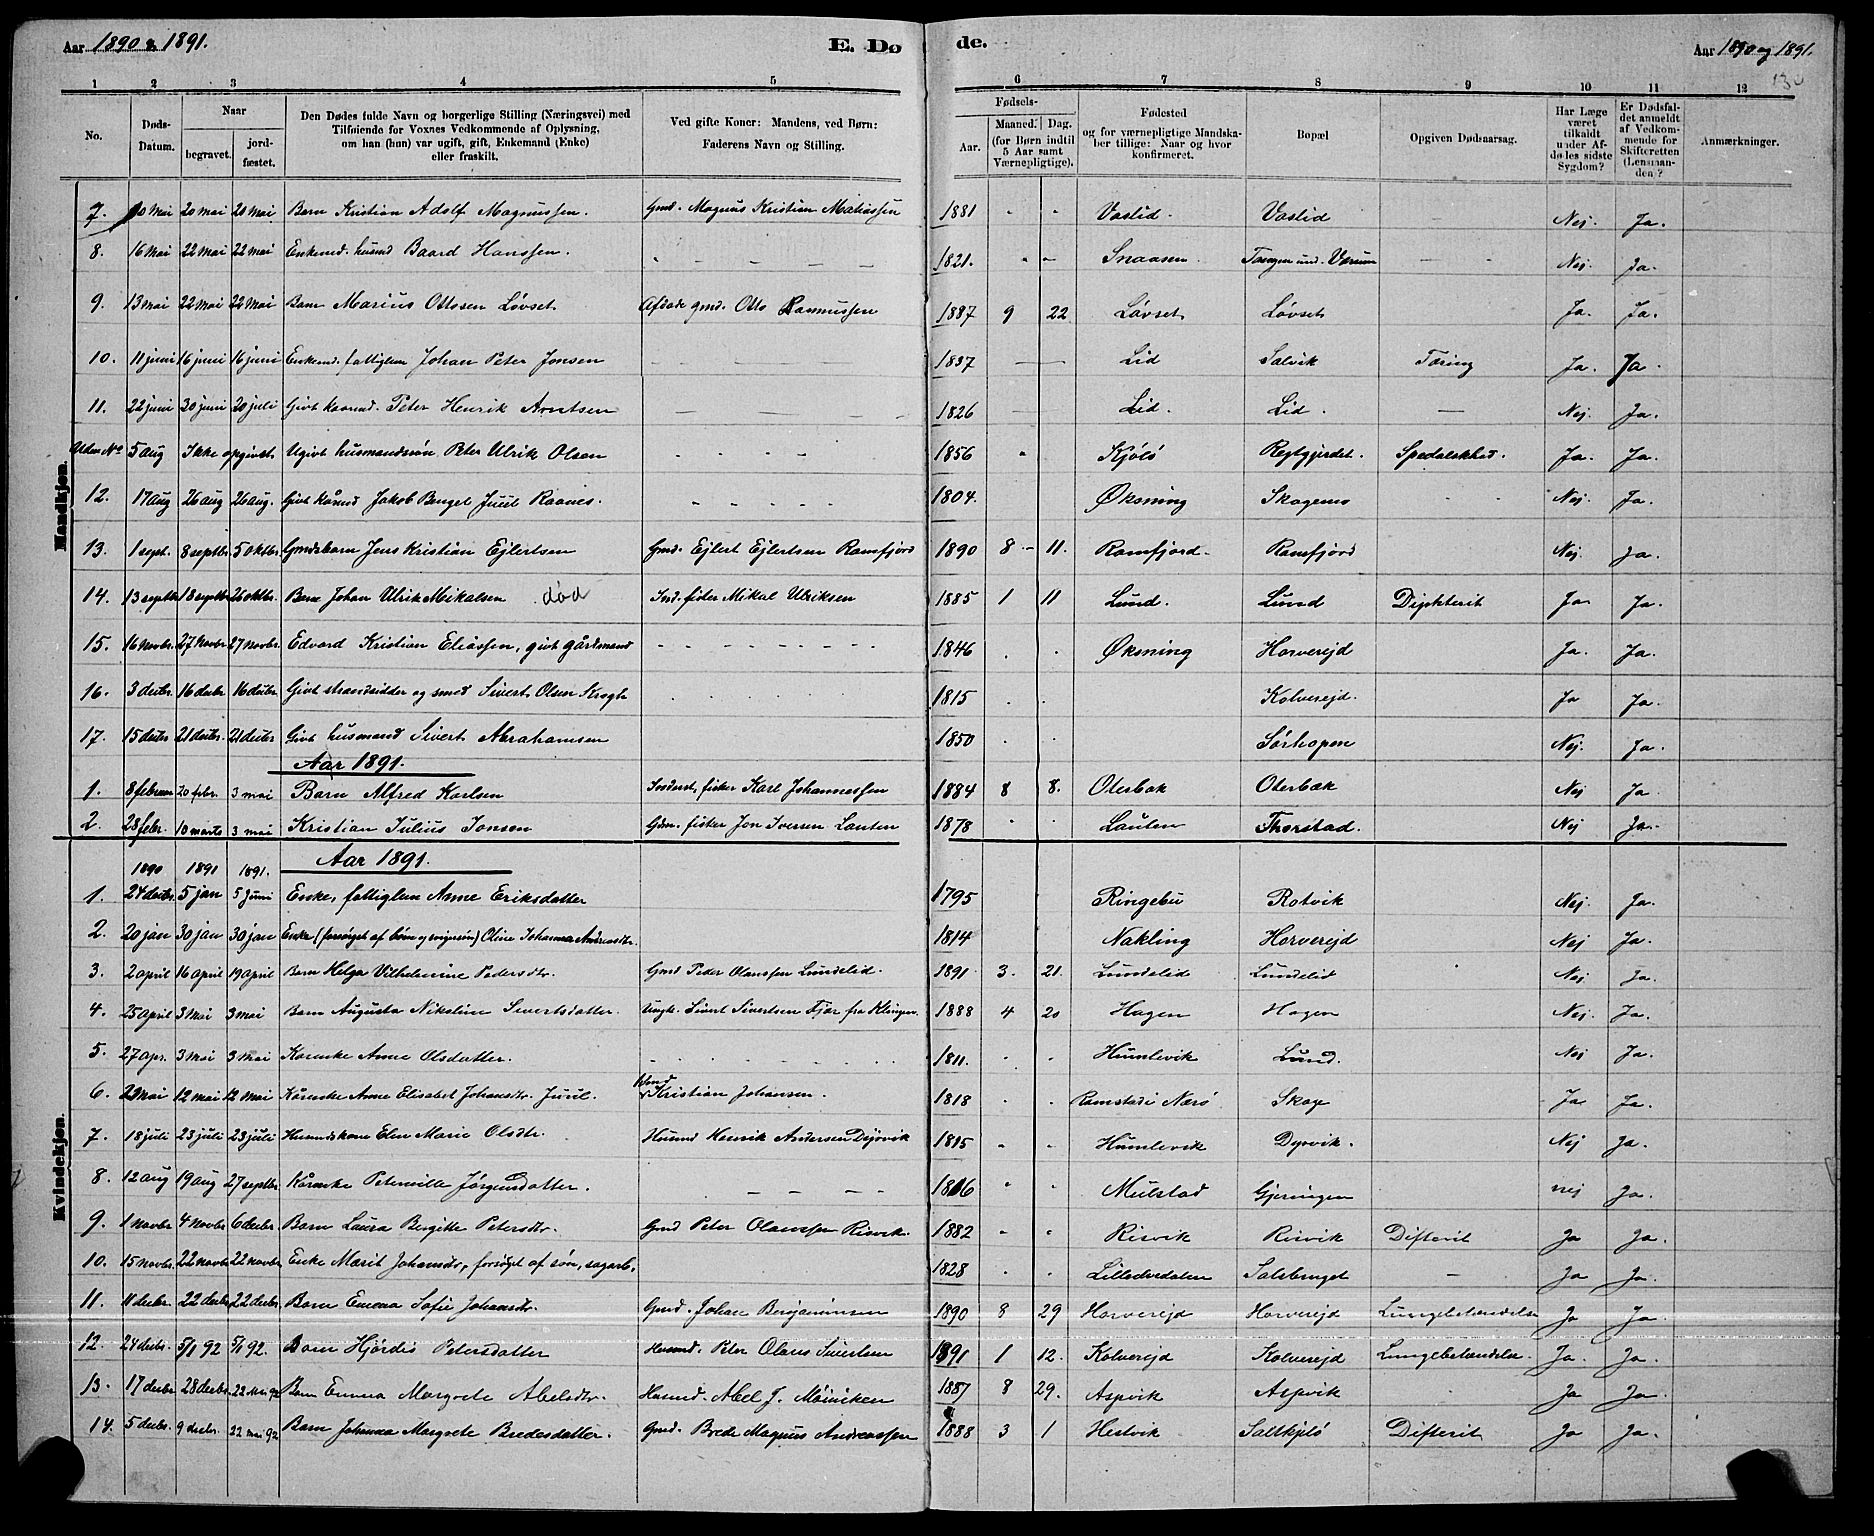 Aar 1890 & 1891. E. Dø de. Aar 1890 og 1891.
130
1 2 3 4 5 6 7 8 9 10 11 12
No. Døds-Datum. Naar begravet. jord-fæstet. Den Dødes fulde Navn og borgerlige Stilling (Næringsvei) med Tilføiende for Voxnes Vedkommende af Oplysning, om han (hun) var ugift, gift, Enkemand (Enke) eller fraskilt. Ved gifte Koner: Mandens, ved Børn: Faderens Navn og Stilling. Fødsels- Aar. Maaned. Dag. (for Børn indtil 5 Aar samt Værnepligtige). Fødested og for værnepligtige Mandska-ber tillige: Naar og hvor konfirmeret. Bopæl. Opgiven Dødsaarsag. Har Læge været tilkaldt under Af-dødes sidste Sygdom? Er Dødsfal-det anmeldt af Vedkom-mende for Skifteretten (Lensman-den)? Anmærkninger.
Mandkjøn.
7. 10 mai 20 mai 20 mai Barn Kristian Adolf Magnussen. Gmd. Magnus Kristian Matiassen 1881 " " Vaslid. Vaslid — Nej. Ja.
8. 16 mai 22 mai 22 mai Enkemd. husmd Baard Hanssen. 1821. " " Snaasen. Tangen und. Værum — Nej. Ja.
9. 13 mai 22 mai 22 mai Barn Marius Ottosen Løvset Afdøde gmd. Otto Rasmussen 1887 9 22 Løvset Løvset Ja. Ja.
10. 11 juni 16 juni 16 juni Enkemd. fattiglem Johan Peter Jonsen — 1837 — Lid Salvik Tæring Ja. Ja.
11. 22 juni 30 juni 20 juli Givt kaarmd. Peter Henrik Arntsen — 1826 — Lid. Lid. — Nej. Ja.
Uden No 5 aug Ikke opgivet. Ugivt husmandssøn Peter Ulrik Olsen - 1856 " Kjølø Reptgjerdet. Spedalskhed. Ja. Ja.
12. 17 aug 26 aug 26 aug. Givt kårmd Jakob Benget Juul Raanes. - 1804. Øksning Skagemo - Nej. Ja.
13. 1 sept. 8 septbr 5 oktbr Gmdsbarn Jens Kristian Ejlertsen Gmd. Ejlert Ejlertsen Ramfjord 1890 8 - 11. Ramfjord. Ramfjord Nej. Ja.
14. 13 septbr 18 septbr 26 oktbr. Barn Johan Ulrik Mikalsen død Ind. fisker Mikal Ulriksen 1885 1 11 Lund. Lund Diphterit Ja. Ja.
15. 16 novbr. 27 novbr 27 novbr. Edvard Kristian Eliassen, givt gårdmand - 1846 . . Øksning Horverejd Ja. Ja.
16. 3 decbr. 16 decbr 16 decbr. Givt strandsidder og smed Sivert Olsen Krogh 1815 . . Kolverejd. Ja Ja.
17. 15 decbr 21 decbr. 21 decbr Givt husmand Sivert Abrahamsen 1850 . . Sørhopen Nej. Ja.
Aar 1891.
1. 8 februar 20 febr. 3 mai Barn Alfred Karlsen Inderst, fisker Karl Johannessen 1884 8 8. Oterbak Oterbæk Nej Ja.
2. 28 febr. 10 marts 3 mai Kristian Julius Jonsen Gdm. fisker Jon Iversen Lauten 1878 " " Lauten Thorstad. Nej Ja.
Kvindekjøn.
1890 1891 1891. Aar 1891.
1. 24 decbr. 5 jan 5 juni Enke, fattiglem Anne Eriksdatter 1795 Ringebu Rotvik Nej. Ja.
2. 20 jan 30 jan 30 jan Enke (forsørget af børn og svigersøn) Oline Johanna Andreasdtr. 1814 Nakling Horverejd Nej Ja.
3. 2 april 16 april 19 april Barn Helga Vilhelmine Pedersdtr. Gmd Peder Olaussen Lundelid. 1891 3. 21. Lundelid Lundelid Nej Ja.
4. 25 april 3 mai 3 mai Barn Augusta Nikoline Sivertsdatter. Ungk. Sivert Sivertsen Fjær fra Klingen. 1888 4 20 Hagen Hagen Nej. Ja.
5. 27 apr. 3 mai 3 mai Kårenke Anne Olsdatter. 1811. . . Humlevik Lund. Nej Ja.
6. 2 mai 12 mai 12 mai Kårenke Anne Elisabet Johansdtr. Juul. Kristian Johansen. 1818 . . Ramstad i Nærø Skage Ja Ja.
7. 18 juli 23 juli 23 juli Husmdskone Elen Marie Olsdtr. Husmd Henrik Andersen Dyrvik 1815 " " Humlevik Dyrvik. Nej Ja.
8. 12 aug 19 aug 27 septbr Kårenke Peternille Jørgensdatter. — 1816 " " Mulstad Gjeringen nej Ja.
9. 1 novbr 4 novbr 6 decbr. Barn Laura Bergitte Petersdtr. Gmd Peter Olaussen Risvik. 1882 " " Risvik Risvik Difterit Ja Ja.
10. 15 novbr. 22 novbr 22 novbr. Enke Marit Johansdtr, forsørget af søn, sagarb. 1828 . . Lilledvedalen Salsbruget — Ja Ja.
11. 11 decbr. 22 decbr 22 decbr. Barn Emma Sofie Johansdtr. Gmd. Johan Benjaminsen 1890 8 29 Horverejd Horverejd Lungebetændelse Ja Ja.
12. 24 decbr. 5/1 92 5/1 92. Barn Hjørdis Petersdatter Husmd. Peter Olaus Sivertsen 1891 1 12. Kolverejd Kolverejd Lungebetændelse. Ja. Ja.
13. 17 decbr 28 decbr. 22 mai 92 Barn Emma Margrete Abelsdtr. Husmd. Abel J. Møiniken 1887 8 29. Aspvik Aspvik Ja Ja.
14. 5 decbr. 9 decbr. 22 mai 92 Barn Johanna Margrete Bredesdatter. Gmd. Brede Magnus Andreassen 1888 3 1 Hestvik Saltkjelø Difterit Ja Ja.